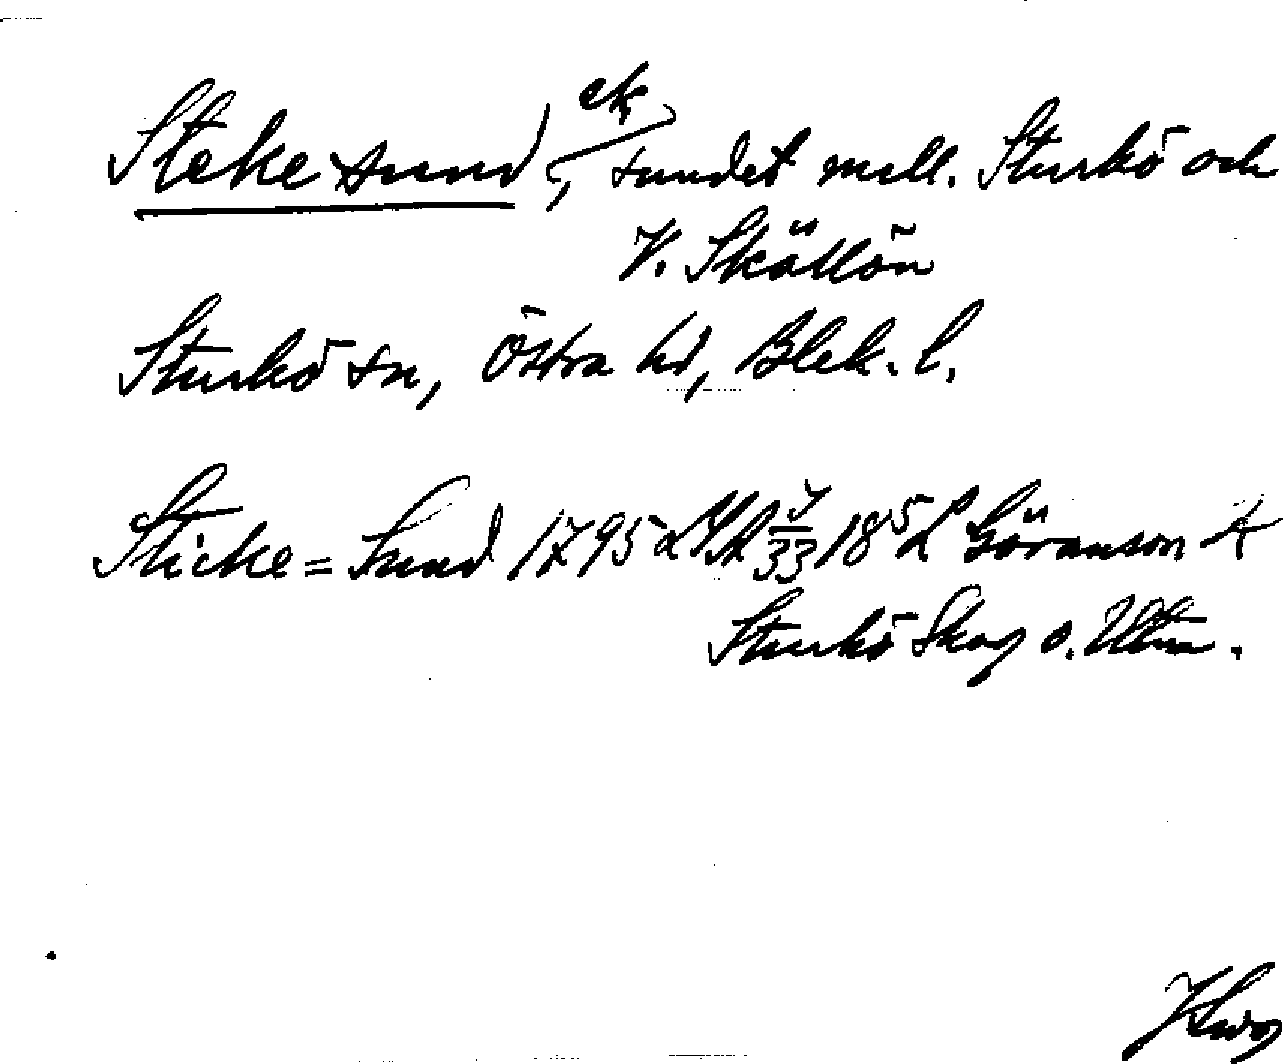 Stekesund, ek, sundet mell. Sturkö och
V. Skällön
Sturkö sn, Östra hd, Blek. l.
Sticke=Sund 1795 LSA 33 18⁵ L Göranson K
Sturkö Skog o. Utm.